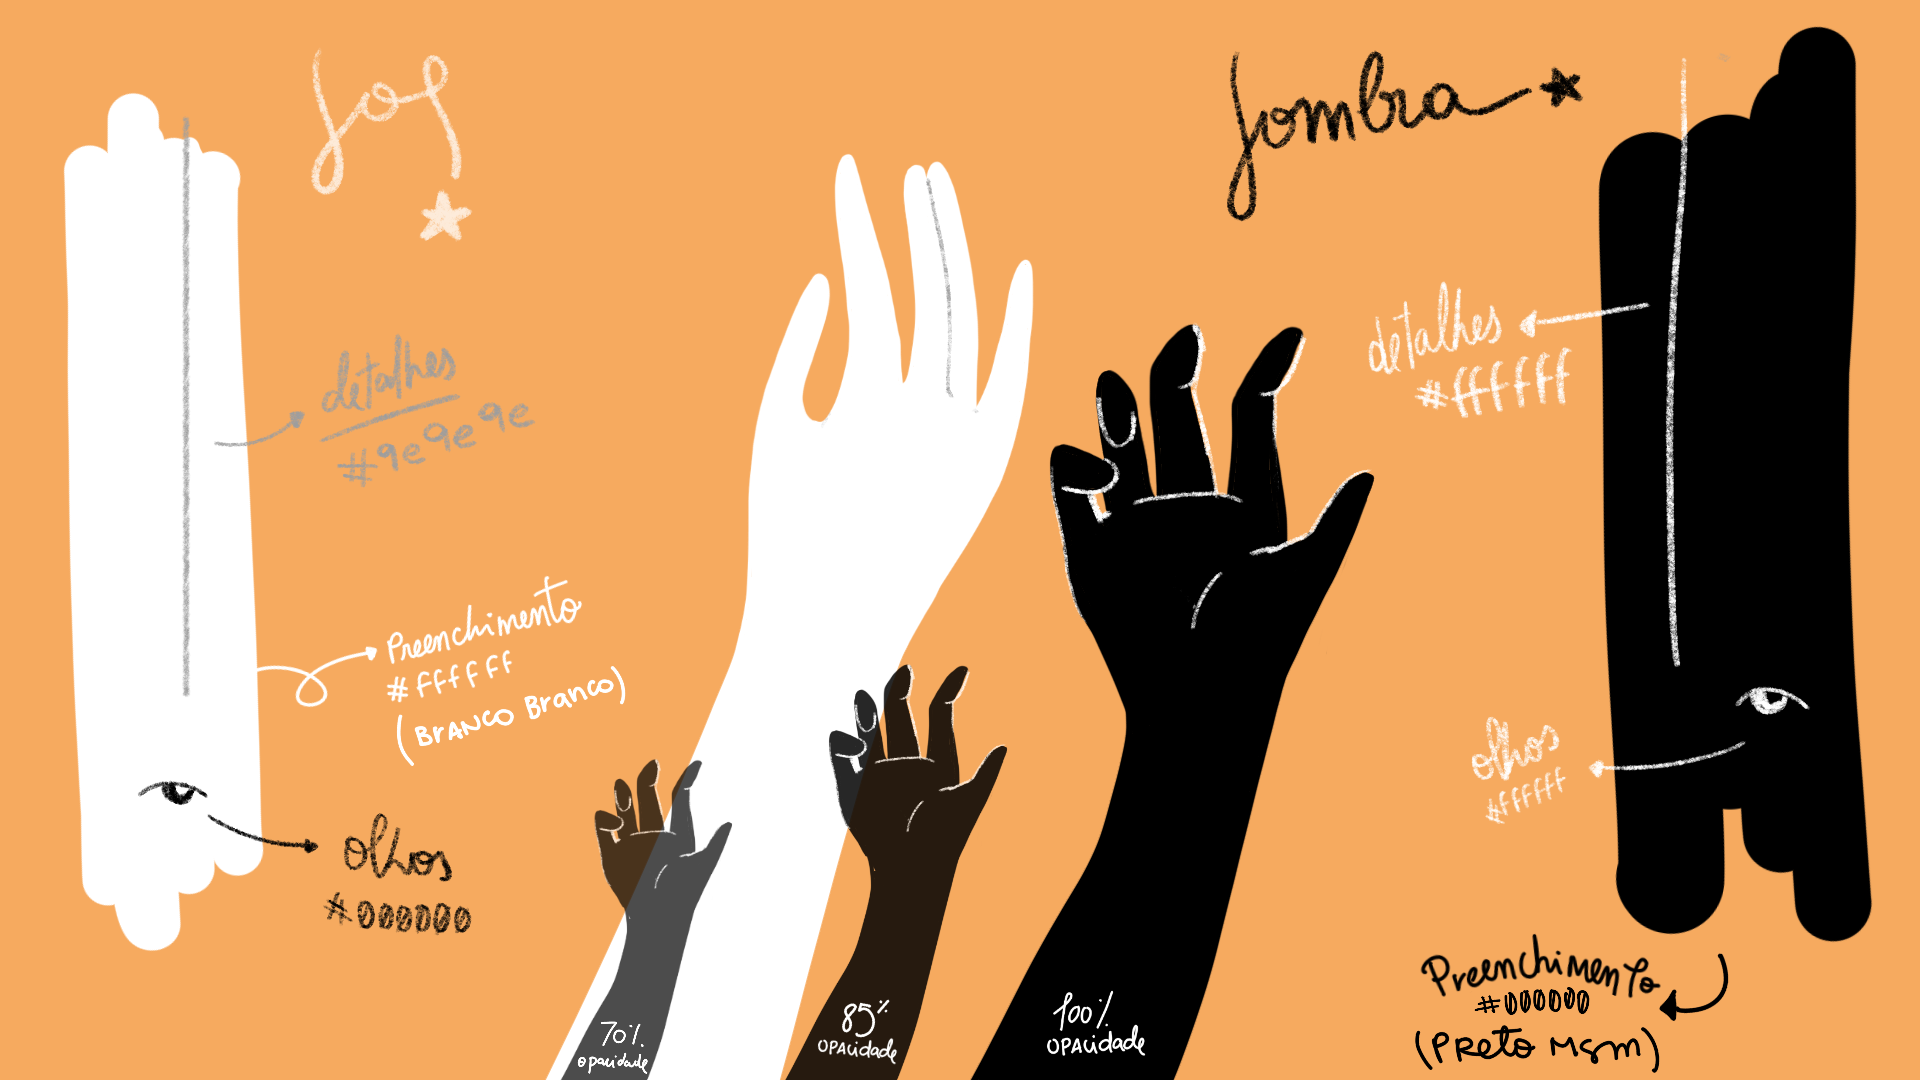 Sol
detalhes
#9e9e9e
Preenchimento
#ffffff
(BrANCO Branco)
olhos
#000000
70%
opacidade
85%
OPAcidade
100%
OPAcidade
Sombra
detalhes
#ffffff
olhos
#ffffff
Preenchimento
#000000
(Preto Msm)